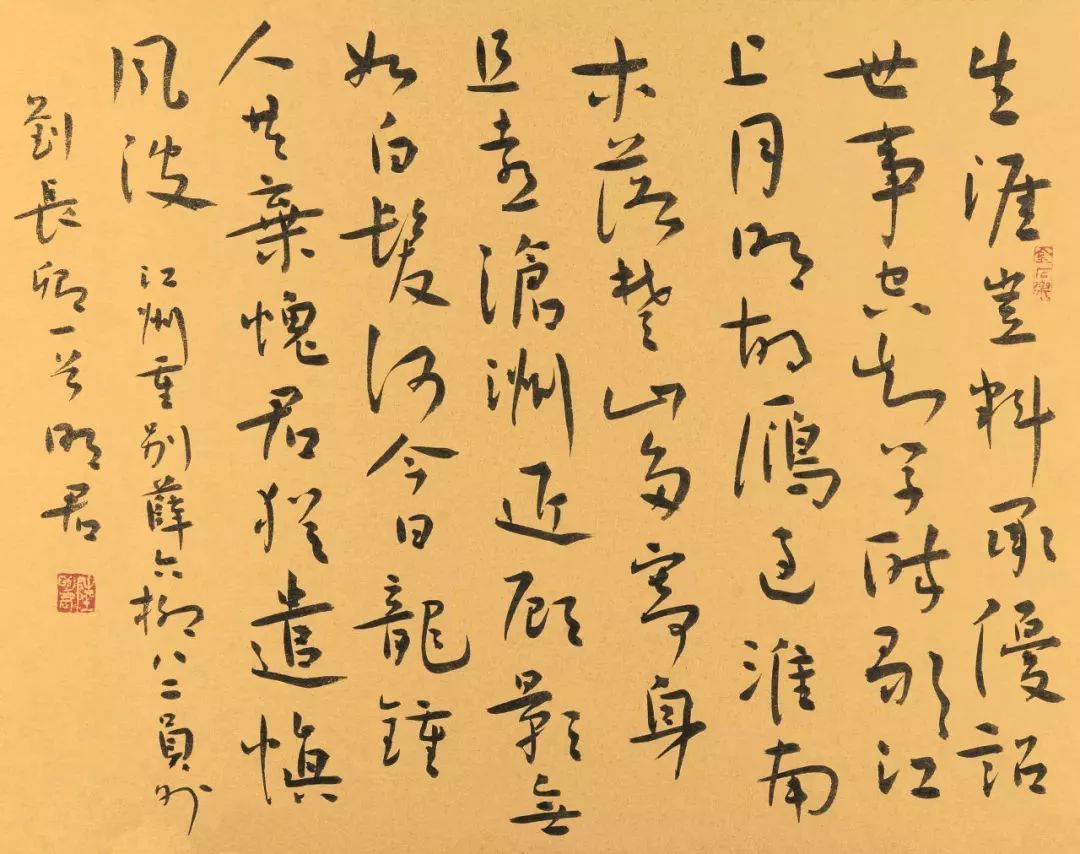 生涯豈料承優詔
世事空知學醉歌江
上月明胡鴈過淮南
木落楚山多寄身
且喜滄洲近顧影無
如白髮何今日龍鍾
人共棄愧君猶遣慎
風波 江州重别薛六柳八二員外
劉長卿一首 明君